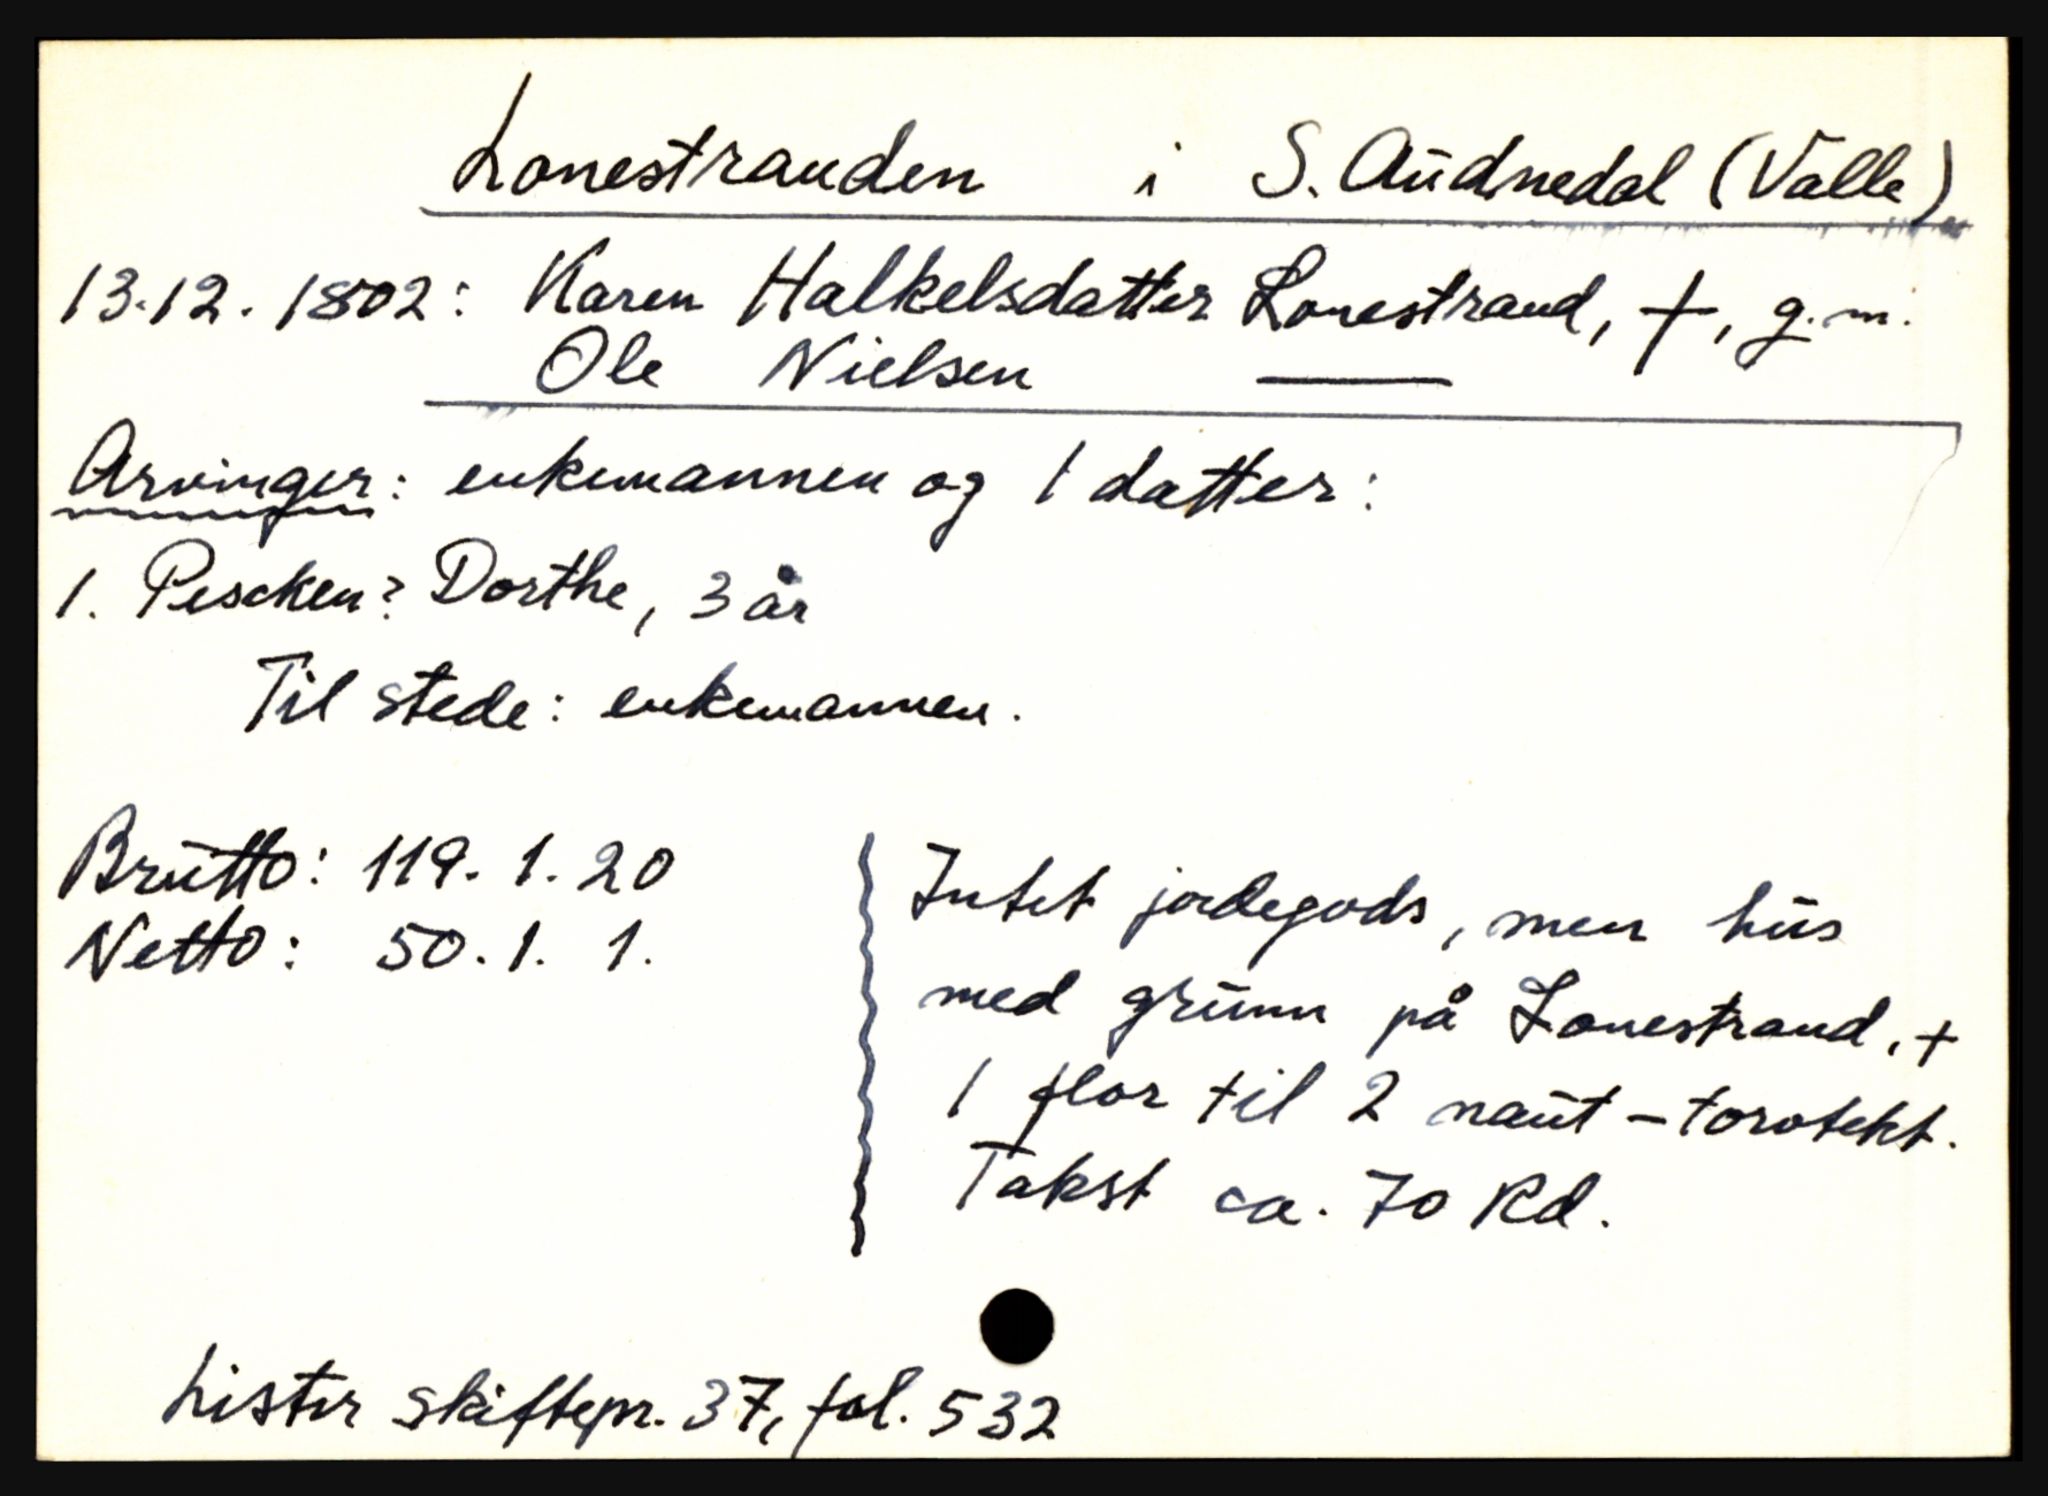 Lonestranden i S. Audnedal (Valle)
13.12.1802: Karen Halkelsdatter Lonestrand, †, g.m.
Ole Nielsen —
Arvinger: enkemannen og 1 datter:
1. Pescken? Dorthe, 3 år
Til stede: enkemannen.
Brutto: 119. 1. 20
Netto: 50. 1. 1.
Intet jordegods, men hus
med grunn på Lonestrand, +
1 flor til 2 naut - torvtekt.
Takst ca. 70 Rd.
Lister skiftepr. 37, fol. 532